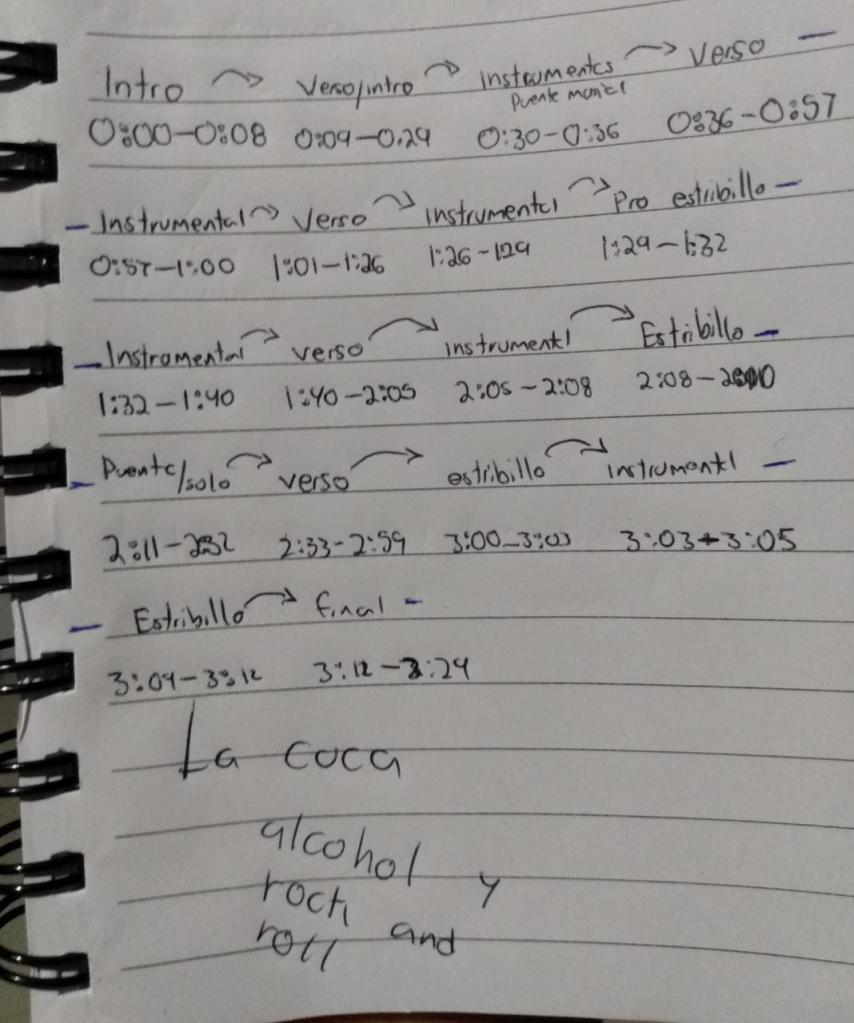 Intro → Verso/intro → instrumentcs → Verso –
Puente musicl
0:00-0:08 0:09-0:29 0:30-0:36 0:36-0:57
- Instrumental → Verso → instrumentcl → Pro estribillo -
0:57-1:00 1:01-1:26 1:26-1:29 1:29-1:32
- Instromental → verso → instrumentl → Estribillo -
1:32-1:40 1:40-2:05 2:05-2:08 2:08-
- Puente/solo → verso → estribillo → instrumentl -
2:11-2:32 2:33-2:59 3:00-3:03 3:03-3:05
- Estribillo → final -
3:09-3:12 3:12-3:24
La coca
alcohol
rock y
roll and